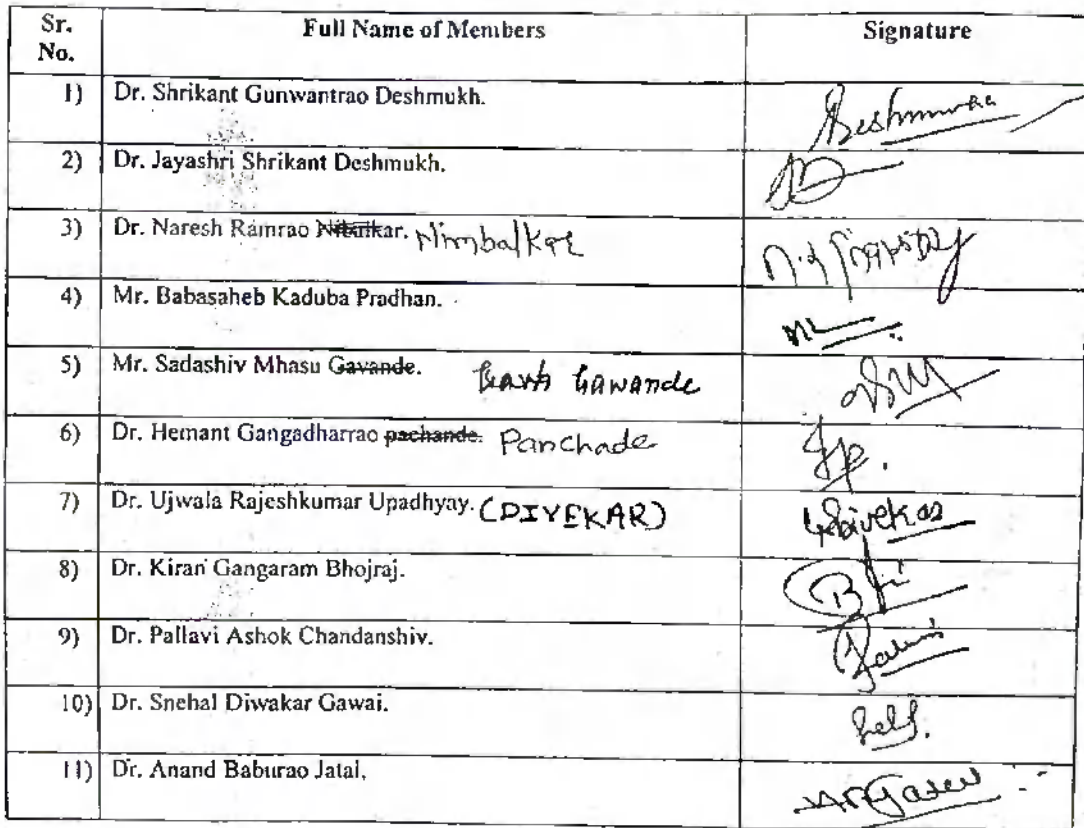 Sr. No. Full Name of Members Signature
1) Dr. Shrikant Gunwantrao Deshmukh. Deshmukh
2) Dr. Jayashri Shrikant Deshmukh.
3) Dr. Naresh Ramrao Nimbalkar
4) Mr. Babasaheb Kaduba Pradhan.
5) Mr. Sadashiv Mhasu Gavande. Gawande
6) Dr. Hemant Gangadharrao pachande. Panchade
7) Dr. Ujwala Rajeshkumar Upadhyay. (DIVEKAR) Divekar
8) Dr. Kiran Gangaram Bhojraj.
9) Dr. Pallavi Ashok Chandanshiv.
10) Dr. Snehal Diwakar Gawai.
11) Dr. Anand Baburao Jatal.